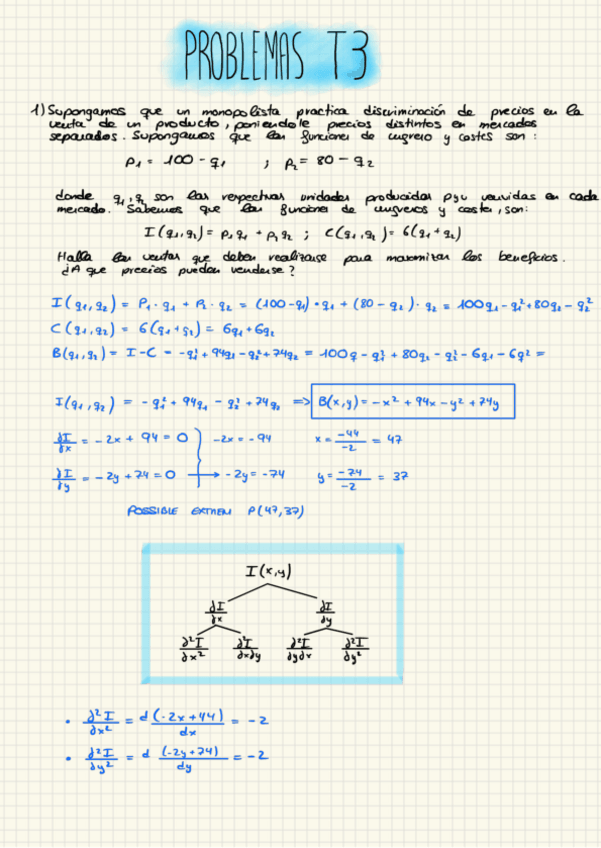 PROBLEMAS T3
1) Supongamos que un monopolista practica discriminación de precios en la
venta de un producto, poniendole precios distintos en mercados
separados. Supongamos que las funciones de ingreso y costes son:
P₁ = 100 - q₁ ; P₂ = 80 - q₂
donde q₁, q₂ son las respectivas unidades producidas y vendidas en cada
mercado. Sabemos que las funciones de ingresos y costes, son:
I(q₁,q₂) = p₁q₁ + p₂q₂ ; C(q₁,q₂) = 6(q₁+q₂)
Halla las ventas que deben realizarse para maximizar los beneficios.
¿A que precios pueden venderse?
I(q₁,q₂) = P₁·q₁ + P₂·q₂ = (100-q₁)·q₁ + (80-q₂)·q₂ = 100q₁-q₁²+80q₂-q₂²
C(q₁,q₂) = 6(q₁+q₂) = 6q₁+6q₂
B(q₁,q₂) = I-C = -q₁²+94q₁-q₂²+74q₂ = 100q-q₁²+80q₂-q₂²-6q₁-6q² =
I(q₁,q₂) = -q₁²+94q₁-q₂²+74q₂ => B(x,y) = -x²+94x-y²+74y
∂I/∂x = -2x+94=0 -2x=-94 x = -44/-2 = 47
∂I/∂y = -2y+74=0 → -2y=-74 y = -74/-2 = 37
POSSIBLE EXTREM P(47,37)
I(x,y)
∂I/∂x ∂I/∂y
∂²I/∂x² ∂²I/∂x∂y ∂²I/∂y∂x ∂²I/∂y²
• ∂²I/∂x² = d(-2x+44)/dx = -2
• ∂²I/∂y² = d(-2y+74)/dy = -2